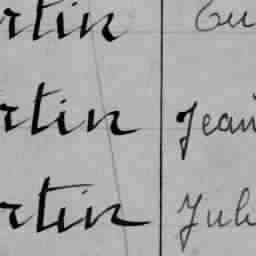 rtin Eu
rtin Jean
rtin Jul